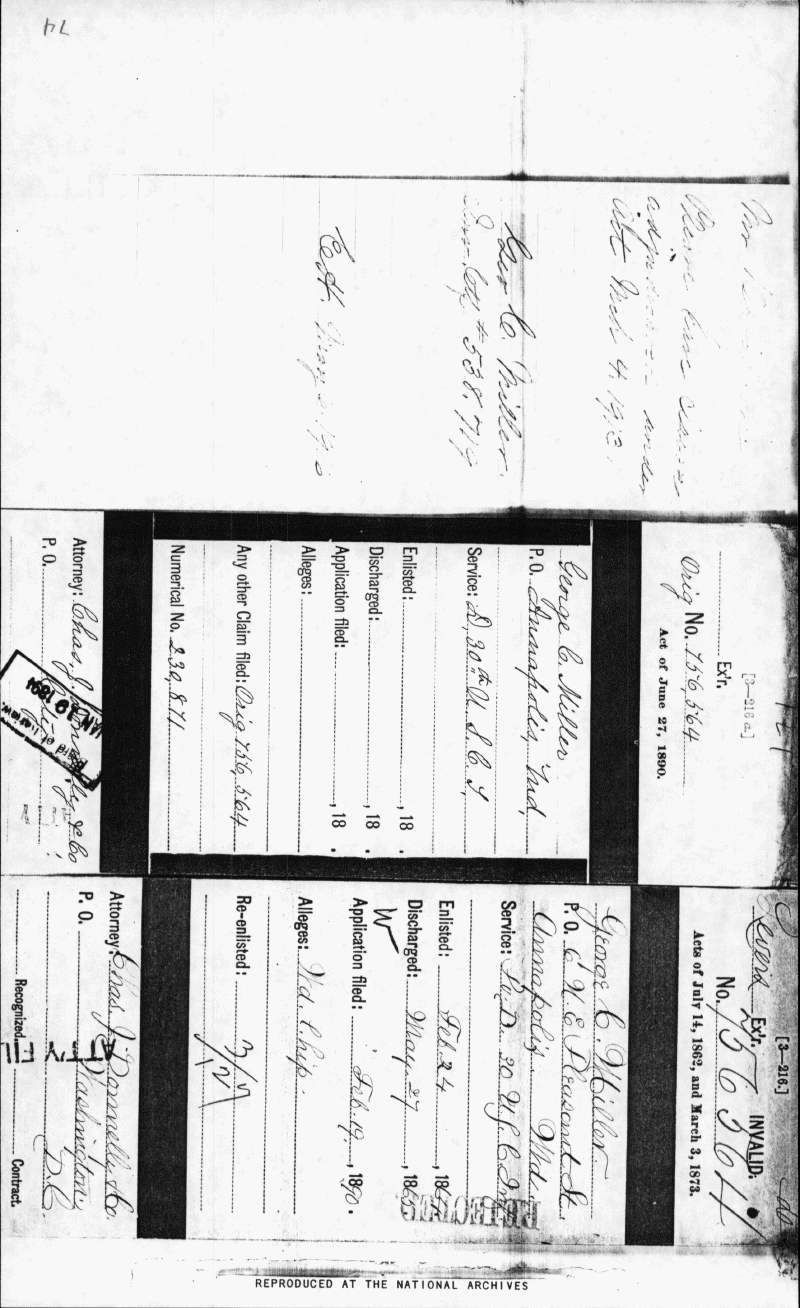 74
Please
under
Act Mch 4, 19
Geo C. Miller
Inv. Ctf # 538,719
[3—216 a.]
Ex'r.
Orig No. 756,564
Act of June 27, 1890.
George C. Miller
P. O. Annapolis, Ind.
Service: D, 30th U. S. C. I
Enlisted: , 18 .
Discharged: , 18 .
Application filed: , 18 .
Alleges:
Any other Claim filed: Orig 756,564
Numerical No. 230,871
Attorney: Chas. J. & Co
P. O.
JAN 19 1894
[3—216.]
Ex'r.
INVALID.
No. 756564
Acts of July 14, 1862, and March 3, 1873.
George C. Miller
P. O. 6 N. E Pleasant St.
Annapolis Md.
Service: Co. D. 30 U S C Inf
Enlisted: Feb 24, 1864
Discharged: May 27, 1865
Application filed: Feb. 19, 1890.
Alleges: Wd. hip.
Re-enlisted:
Attorney: Chas. J Donnelly & Co.
P. O. Washington,
D.C.
Recognized Contract.
REPRODUCED AT THE NATIONAL ARCHIVES